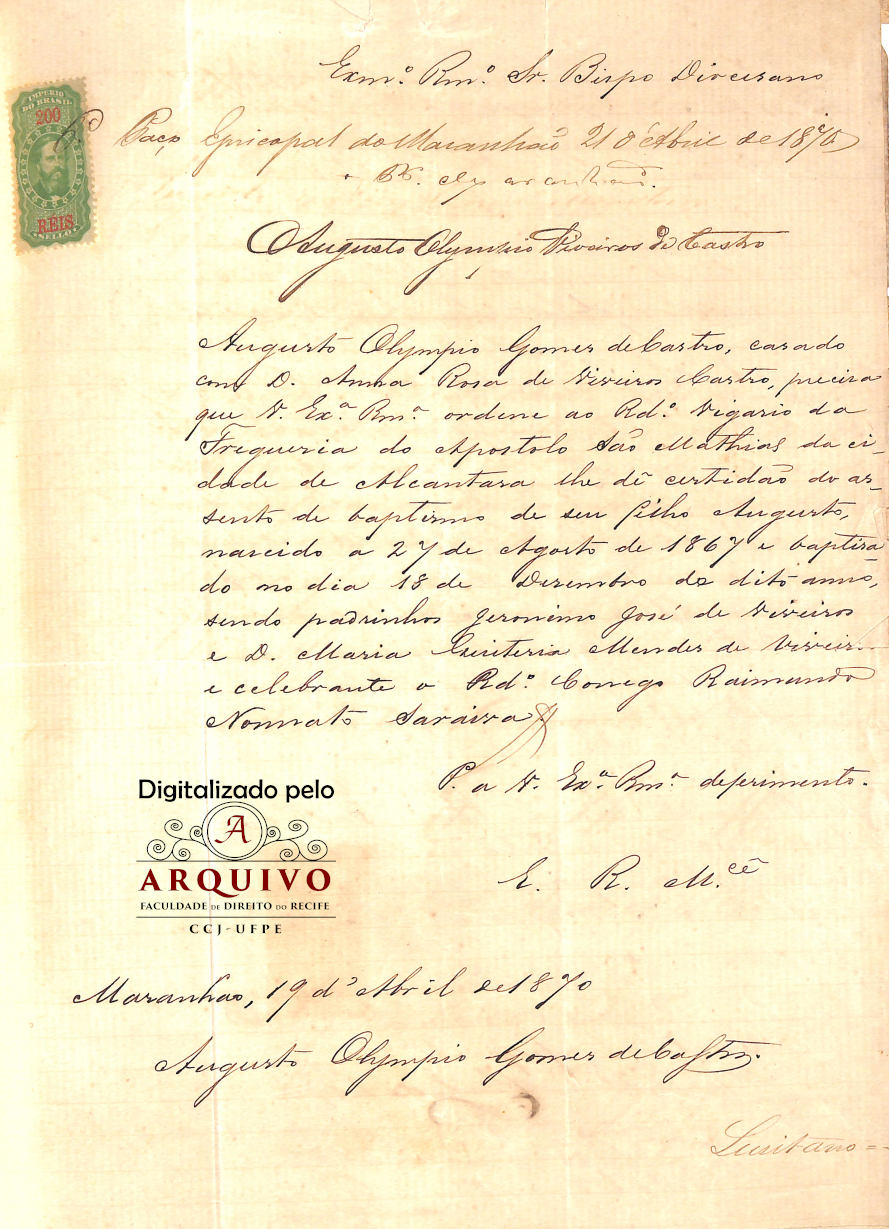 Exmº. Rmº. Sr. Bispo Diocesano
IMPERIO
DO BRASIL
200
RÉIS
SELLO
Paço Episcopal do Maranhão 21 d'Abril de 1870
Augusto Olympio Viveiros de Castro
Augusto Olympio Gomes de Castro, casado
com D. Anna Rosa de Viveiros Castro, precisa
que V. Exª. Rmª. ordene ao Rdº. Vigario da
Freguesia do Apostolo São Mathias da ci-
dade de Alcantara lhe dê certidão do as-
sento de baptismo de seu filho Augusto,
nascido a 27 de Agosto de 1867 e baptisa-
do no dia 18 de Dezembro do dito anno,
sendo padrinhos Jeronimo José de Viveiros
e D. Maria Quiteria Mendes de Viveiros
e celebrante o Rdº. Conego Raimundo
Nonnato Saraiva.
P. a V. Exª. Rmª. deferimento.
E. R. M.cê
Digitalizado pelo
A
ARQUIVO
FACULDADE DE DIREITO DO RECIFE
CCJ-UFPE
Maranhão, 19 d'Abril de 1870
Augusto Olympio Gomes de Castro.
Lusitano